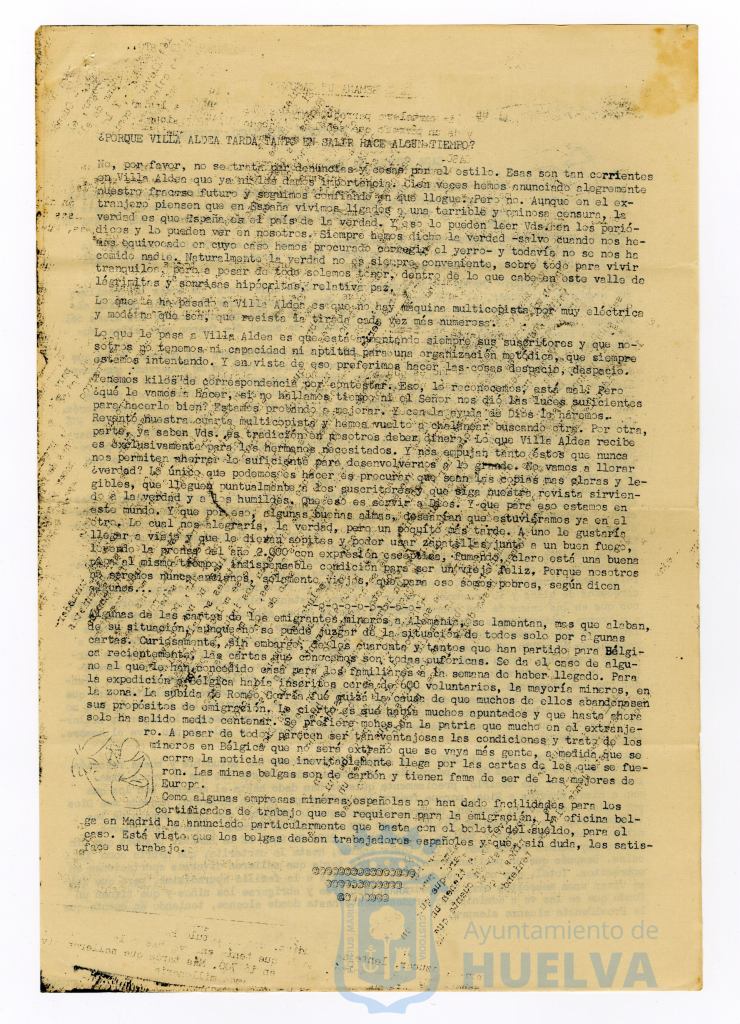 ¿PORQUE VILLA ALDEA TARDA TANTO EN SALIR HACE ALGUN TIEMPO?
No, por favor, no se trata por denuncias y cosas por el estilo. Esas son tan corrientes
en Villa Aldea que ya ni les damos importancia. Cien veces hemos anunciado alegremente
nuestro fracaso futuro y seguimos confiando en que llegue. Pero no. Aunque en el ex-
tranjero piensen que en España vivimos ligados a una terrible y ominosa censura, la
verdad es que España es el país de la verdad. Y eso lo pueden leer Vds. en los perió-
dicos y lo pueden ver en nosotros. Siempre hemos dicho la verdad -salvo cuando nos he-
mos equivocado en cuyo caso hemos procurado corregir el yerro- y todavía no se nos ha
comido nadie. Naturalmente la verdad no es siempre conveniente, sobre todo para vivir
tranquilos, pero a pesar de todo solemos tener, dentro de lo que cabe en este valle de
lágrimitas y sonrisas hipócritas, relativa paz.
Lo que le ha pasado a Villa Aldea es que no hay máquina multicopista, por muy eléctrica
y moderna que sea, que resista la tirada cada vez más numerosa.
Lo que le pasa a Villa Aldea es que está aumentando siempre sus suscritores y que no-
sotros no tenemos ni capacidad ni aptitud para una organización metódica, que siempre
estamos intentando. Y en vista de eso preferimos hacer las cosas despacio, despacio.
Tenemos kilos de correspondencia por contestar. Eso, lo reconocemos, está mal. Pero
¿qué le vamos a hacer, si no hallamos tiempo ni el Señor nos dió las luces suficientes
para hacerlo bien? Estamos probando a mejorar. Y con la ayuda de Dios lo haremos.
Reventó nuestra cuarta multicopista y hemos vuelto a chalanear buscando otra. Por otra,
parte, ya saben Vds. es tradición en nosotros deber dinero. Lo que Villa Aldea recibe
es exclusivamente para los hermanos necesitados. Y nos empujan tanto éstos que nunca
nos permiten ahorrar lo suficiente para desenvolvernos a lo grande. No vamos a llorar
¿verdad? Lo único que podemos es hacer es procurar que sean las copias mas claras y le-
gibles, que lleguen puntualmente a los suscritores y que siga nuestra revista sirvien-
do a la verdad y a los humildes. Que eso es servir a Dios. Y que para eso estamos en
este mundo. Y que por eso, algunas buenas almas, desearían que estuviéramos ya en el
otro. Lo cual nos alegraría, la verdad, pero un poquito más tarde. A uno le gustaría
llegar a viejo y que le dieran sopitas y poder usar zapatillas junto a un buen fuego,
leyendo la prensa del año 2.000 con expresión escéptica, fumando, claro está una buena
pipa al mismo tiempo, indispensable condición para ser un viejo feliz. Porque nosotros
no seremos nunca ancianos, solamente viejos, que para eso somos pobres, según dicen
algunos...
-o-o-o-o-o-o-o-
Algunas de las cartas de los emigrantes mineros a Alemania, se lamentan, mas que alaban,
de su situación, aunque no se puede juzgar de la situación de todos solo por algunas
cartas. Curiosamente, sin embargo, de los cuarenta y tantos que han partido para Bélgi-
ca recientemente, las cartas que conocemos son todas eufóricas. Se da el caso de algu-
no al que le han concedido casa para los familiares a la semana de haber llegado. Para
la expedición a Bélgica había inscritos cerca de 600 voluntarios, la mayoría mineros, en
la zona. La subida de Romeo Gorría fué quizá la causa de que muchos de ellos abandonasen
sus propósitos de emigración. Lo cierto es que había muchos apuntados y que hasta ahora
solo ha salido medio centenar. Se prefiere menos en la patria que mucho en el extranje-
ro. A pesar de todo, parecen ser tan ventajosas las condiciones y trato de los
mineros en Bélgica que no será extraño que se vaya más gente, a medida que se
corra la noticia que inevitablemente llega por las cartas de los que se fue-
ron. Las minas belgas son de carbón y tienen fama de ser de las mejores de
Europa.
Como algunas empresas mineras españolas no han dado facilidades para los
certificados de trabajo que se requieren para la emigración, la oficina bel-
ga en Madrid ha anunciado particularmente que basta con el bolete del sueldo, para el
caso. Está visto que los belgas desean trabajadores españoles y que, sin duda, les satis-
face su trabajo.
Ayuntamiento de
HUELVA